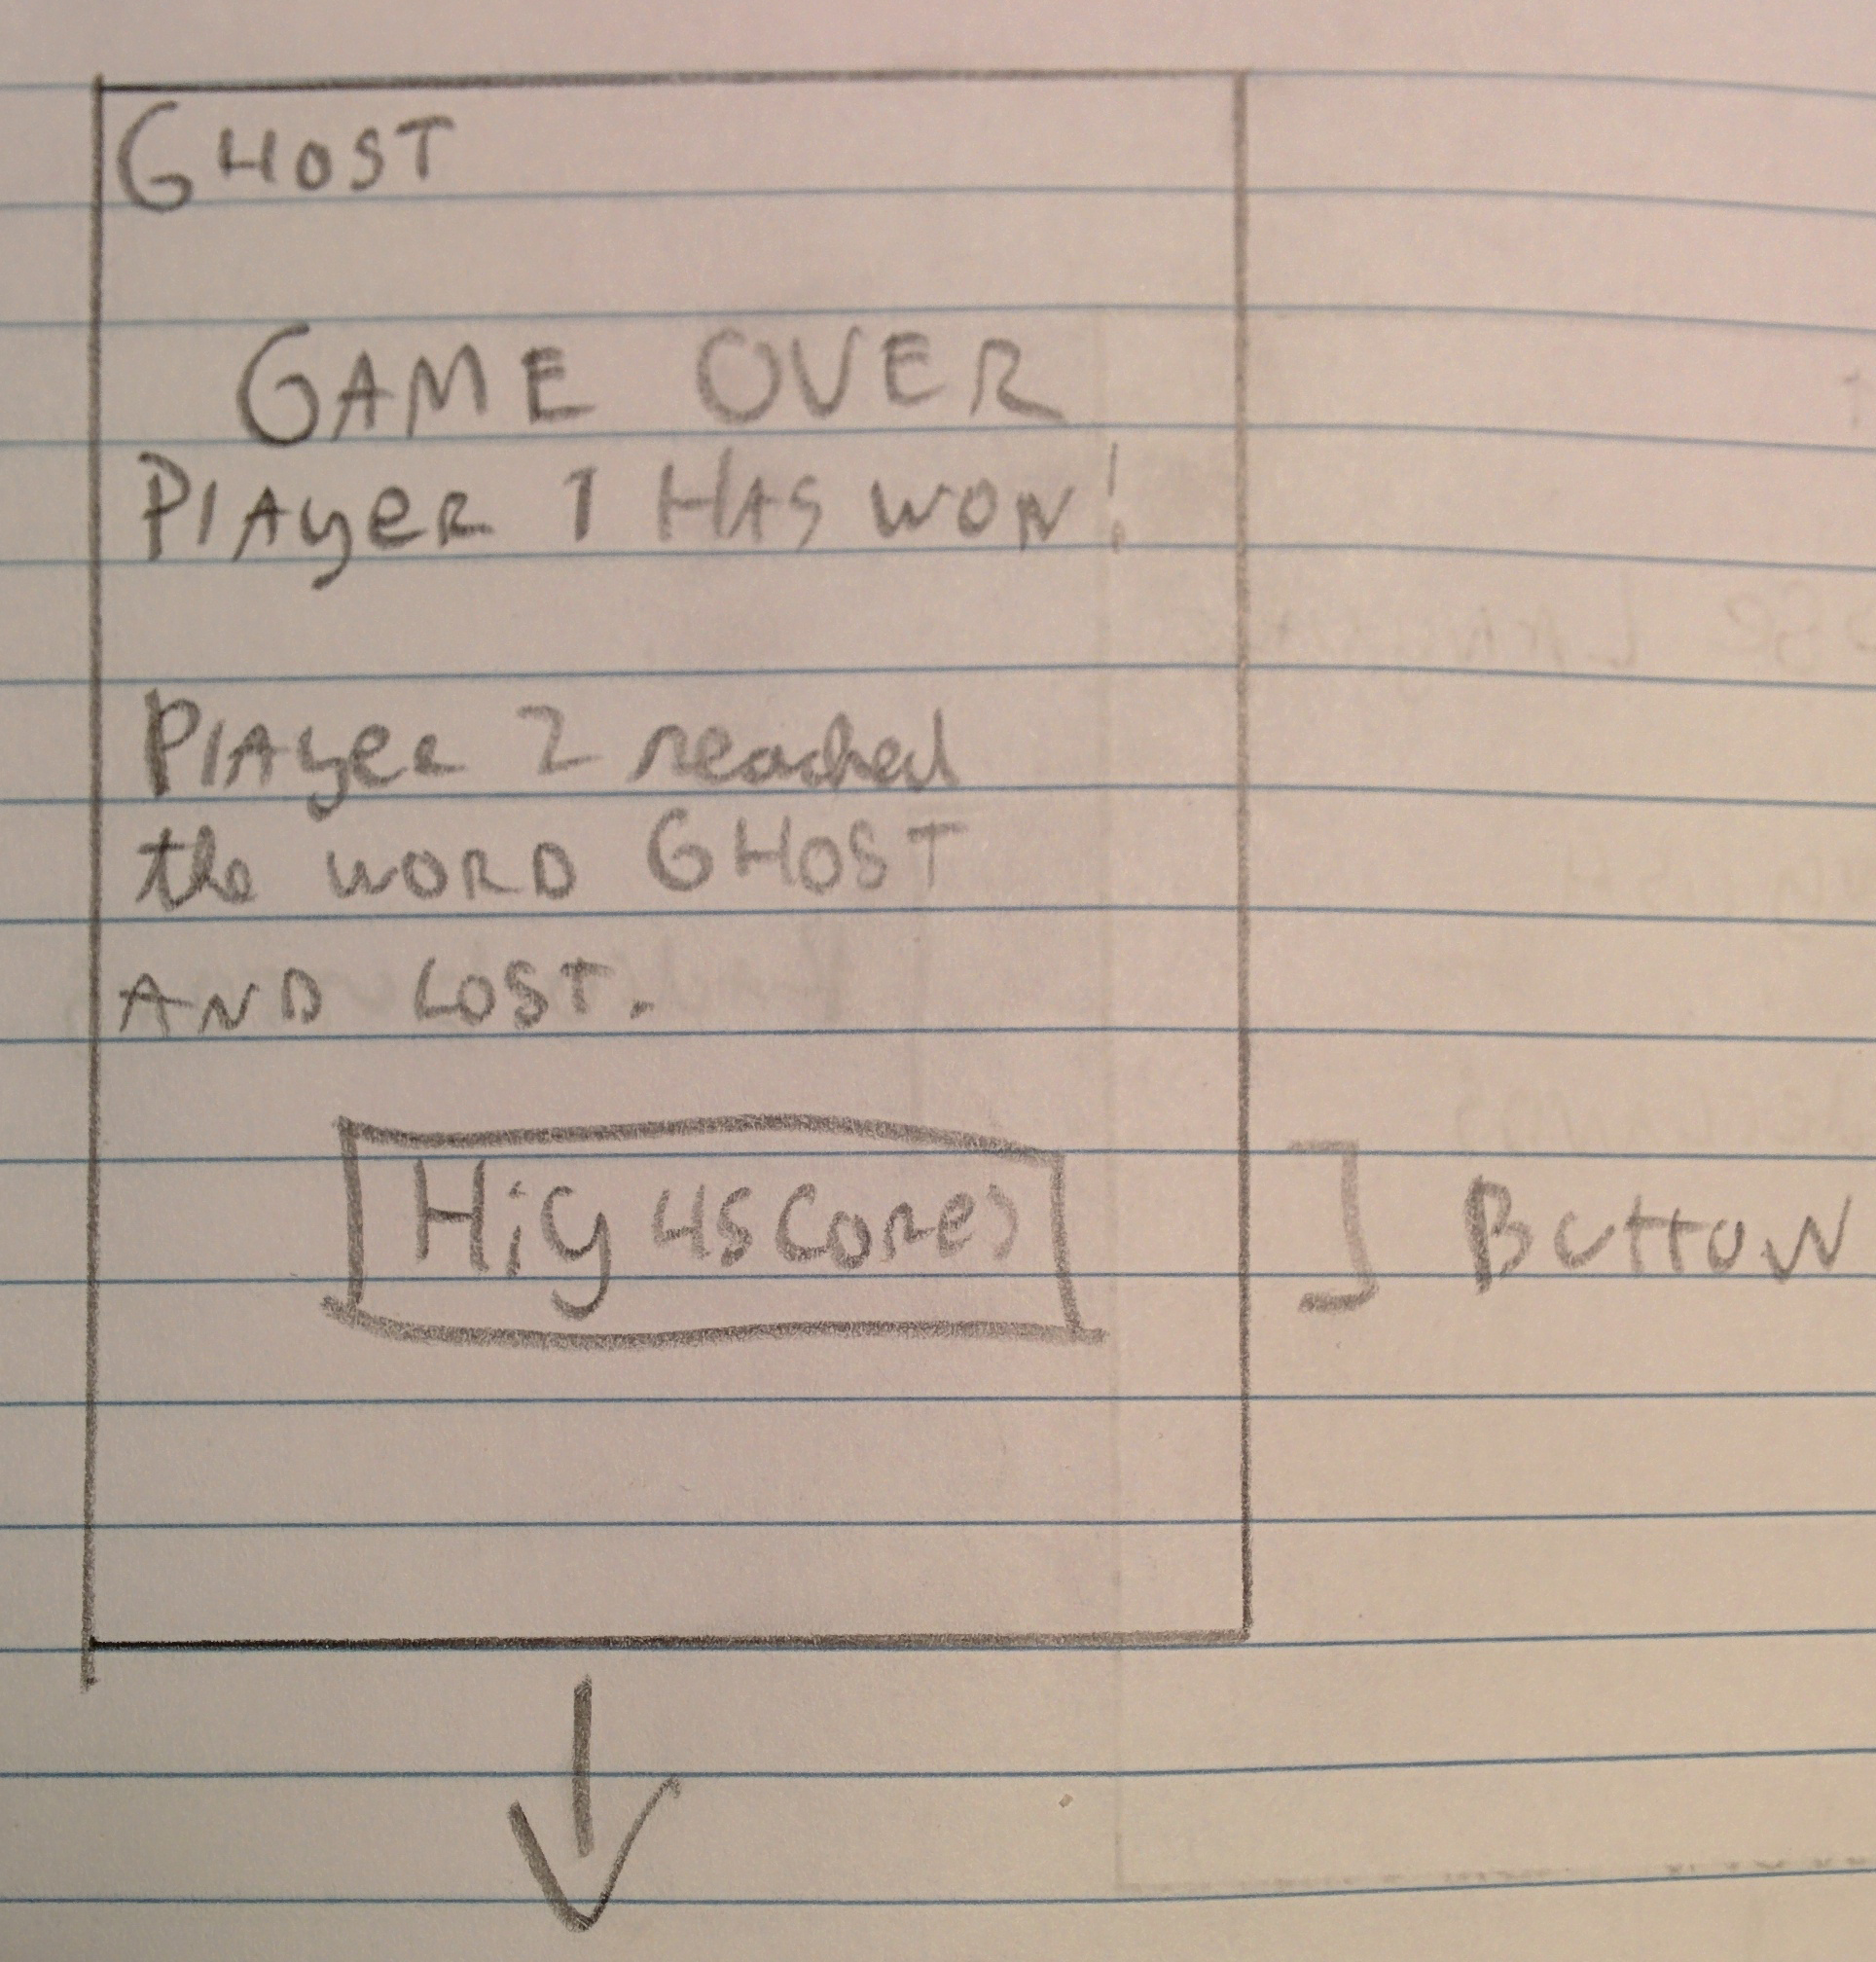 GHOST
GAME OVER
PlAyeR 1 HAS WON!
PlAyeR 2 reached
the WORD GHOST
AND LOST.
HigHscores
BUTTON